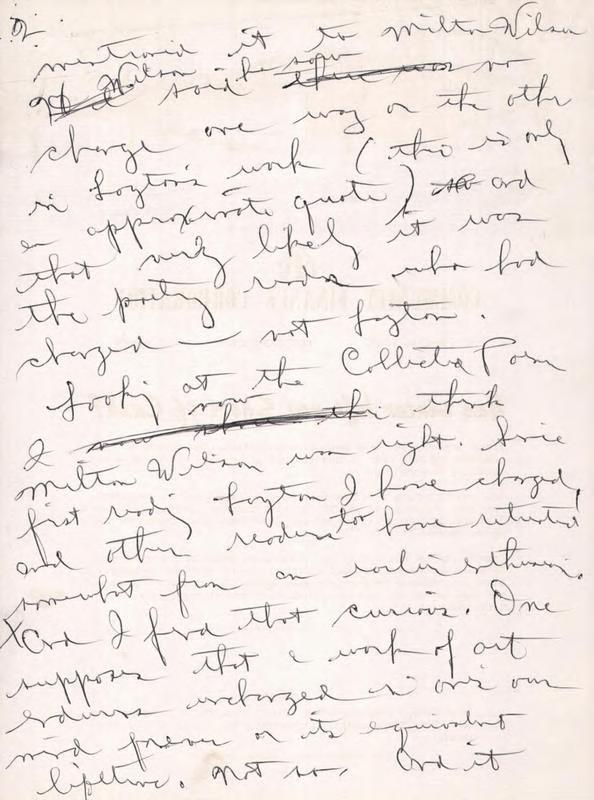 2.
mentioned it to Milton Wilson
Wilson said he saw no
change one way or the other
in Layton's work (this is only
an approximate quote) and
that very likely it was
the poetry reader who had
changed — not Layton.
Looking at the Collected Poems
I now think
Milton Wilson was right. Since
first reading Layton I have changed,
and other readers too have retreated
somewhat from an earlier enthusiasm.
And I find that curious. One
supposes that a work of art
endures unchanged in one's own
mind forever or its equivalent
lifetime. Not so. And it